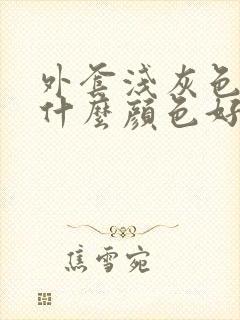 外套淺灰色
什麼顏色好
焦雪宛